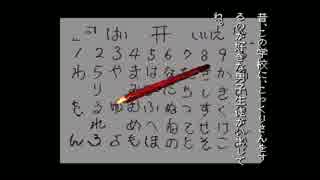 昔、この学校に、こっくりさんをす
るのが好きな男子生徒がいまして
ね。
はい 开 いいえ
1 2 3 4 5 6 7 8 9
わ ら や ま は な た さ か
り み に ち し き
を る ゆ む ふ ぬ つ す く
れ め へ ね て せ け
ん ろ よ も ほ の と そ こ